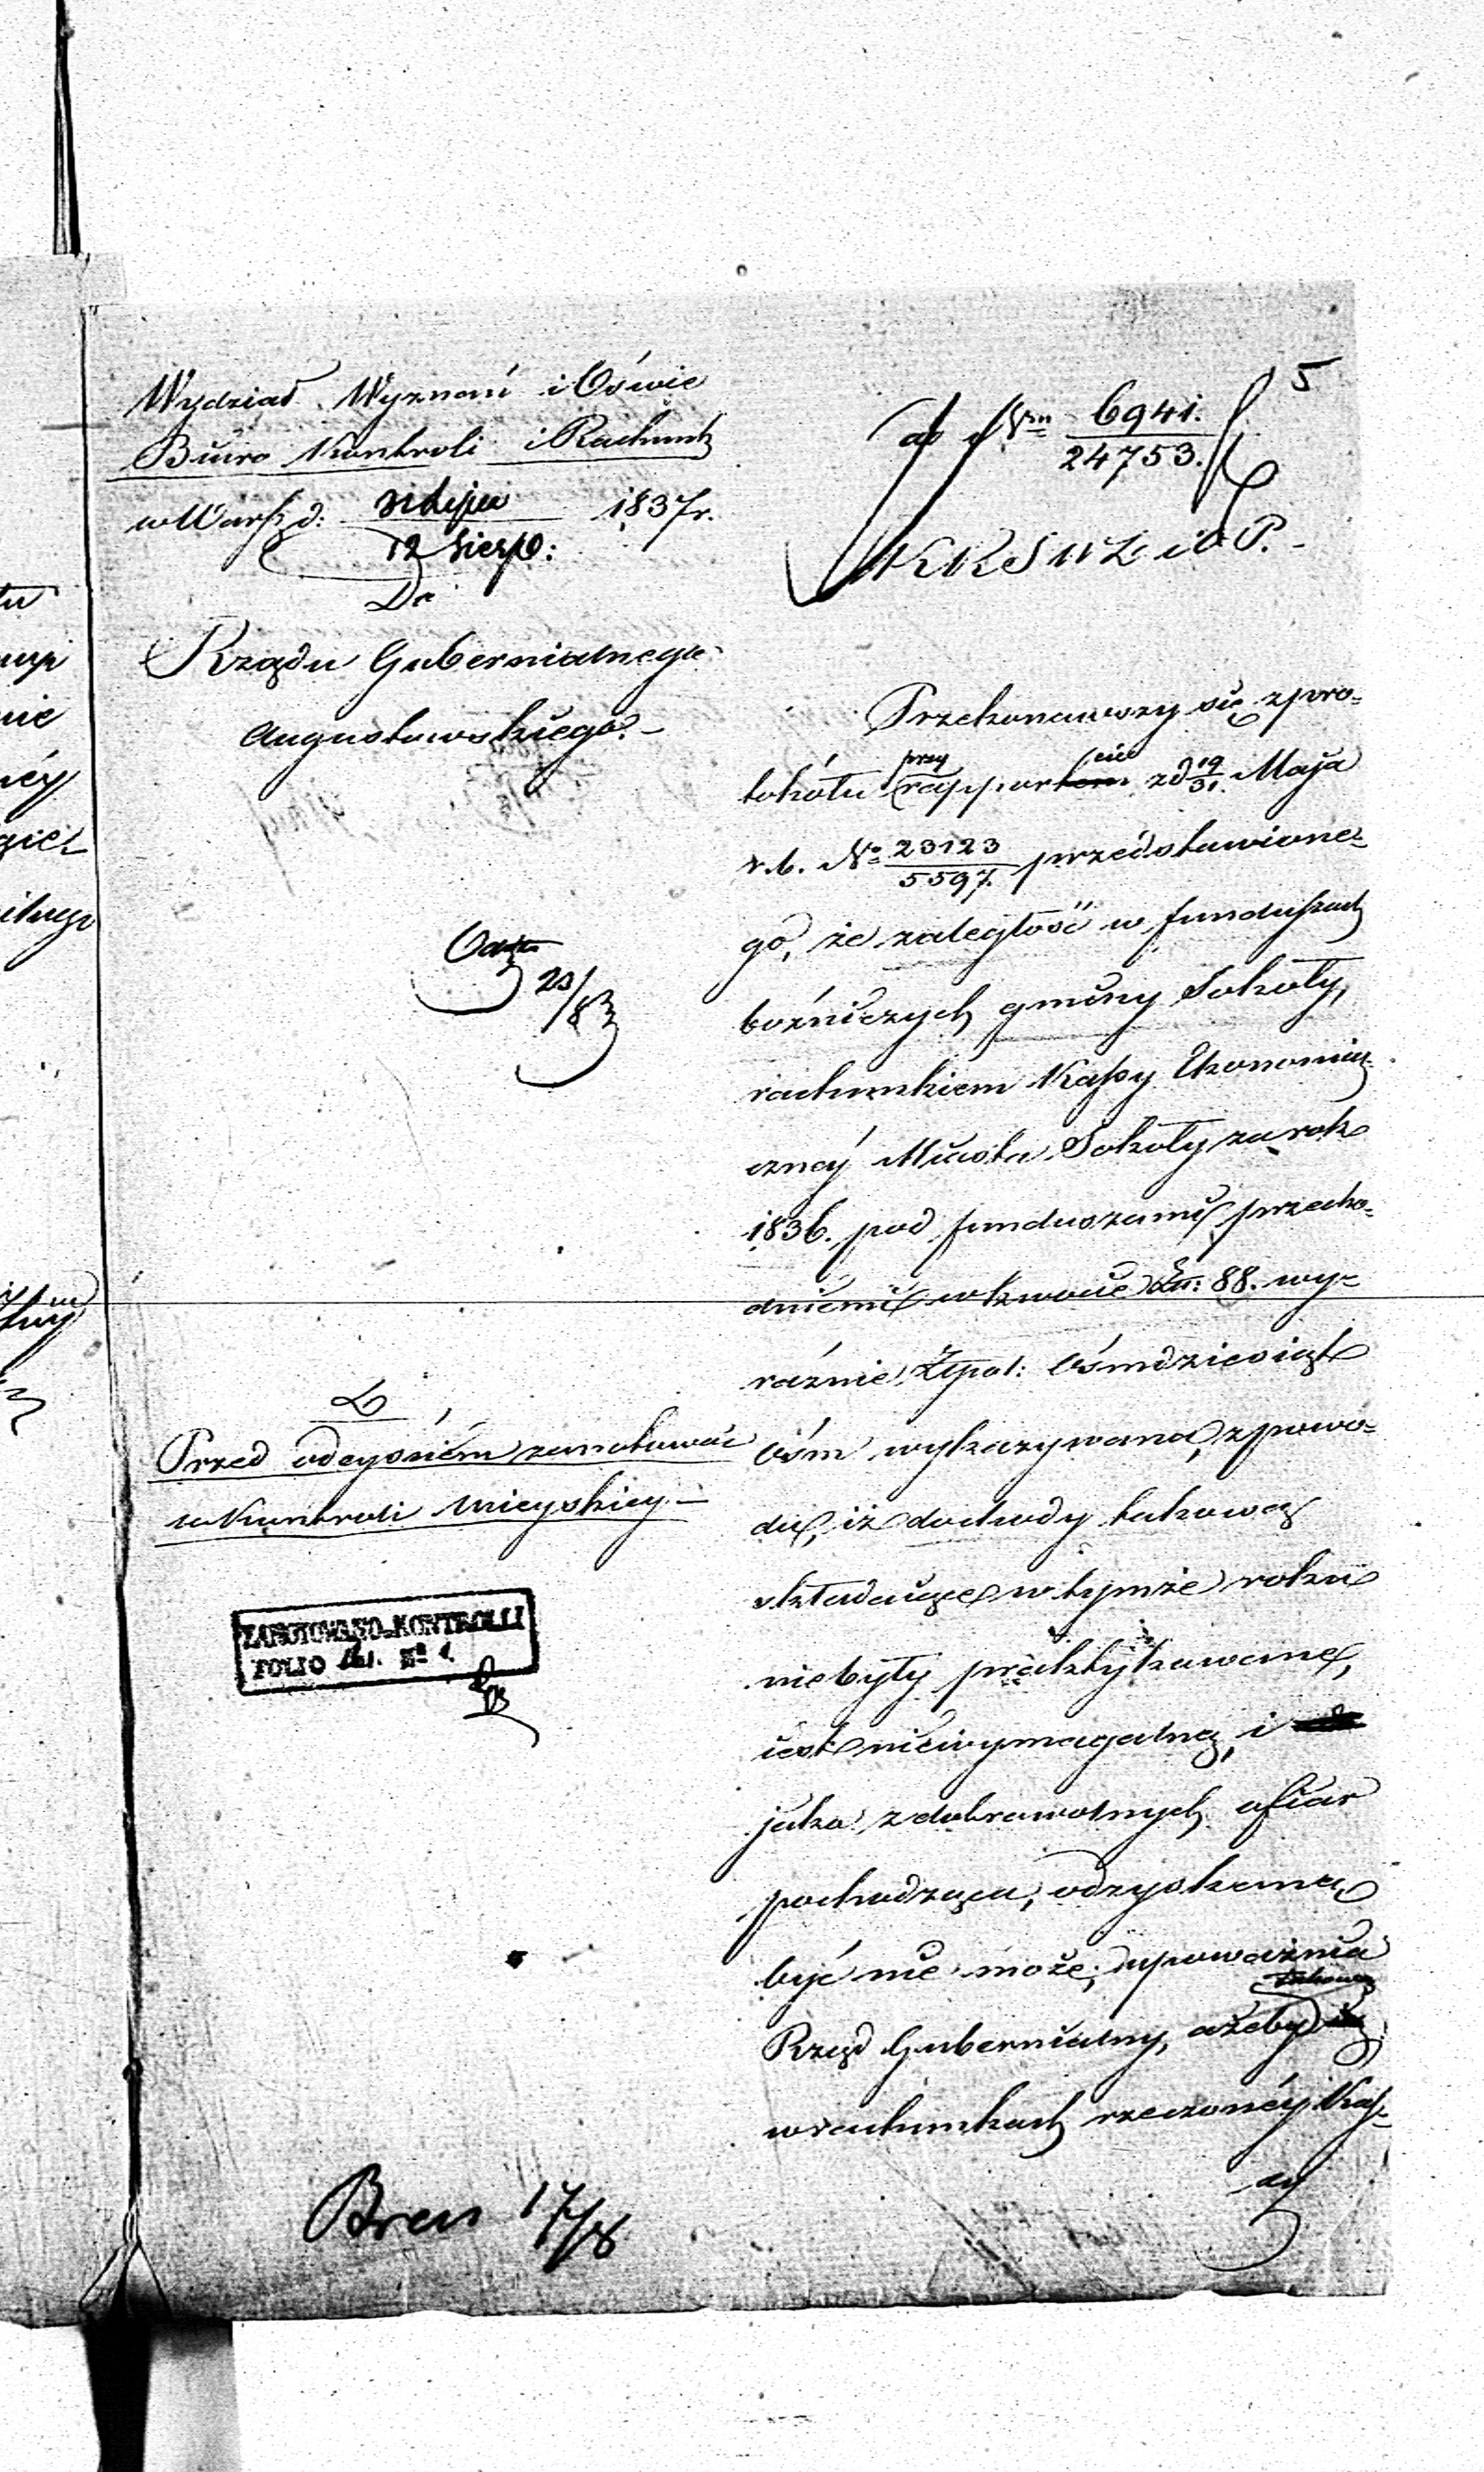 5
Wydział Wyznań i Oświe
Biuro Kontroli i Rachunk
w Warsz. d: 31 Lipca / 12 Sierp: 1837 r.
Do
Rządu Gubernialnego
Augustowskiego. –
do Nru 6941. / 24753.
KRSW D i O P. –
Przekonawszy się z pro=
tokółu przy rapporcie z d 19/31. Maja
r. b. No 23123 / 5597. przedstawione=
go, że zaległość w funduszach
bóźniczych gminy Sokoły,
rachunkiem Kassy Ekonomi=
cznej Miasta Sokoły za rok
1836. pod funduszami przecho=
dniemi w kwocie Zł: 88. wy=
raźnie Złpol: Ośmdziesiąt
ośm wykazywana, z powo=
du, iż dochody takową
składaiące w tymże roku
niebyły praktykowane,
iest niewymagalną, i
jako z dobrowolnych ofiar
pochodząca, odzyskaną
być nie może; upoważnia
Rząd Gubernialny, ażeby takową
w rachunkach rzeczonéy Kas=
sy
23/8
Przed odeysciem zanotować
w Kontroli Mieyskiey –
ZANOTOWANO w KONTROLLI
FOLIO No 1.
Bren 17/8